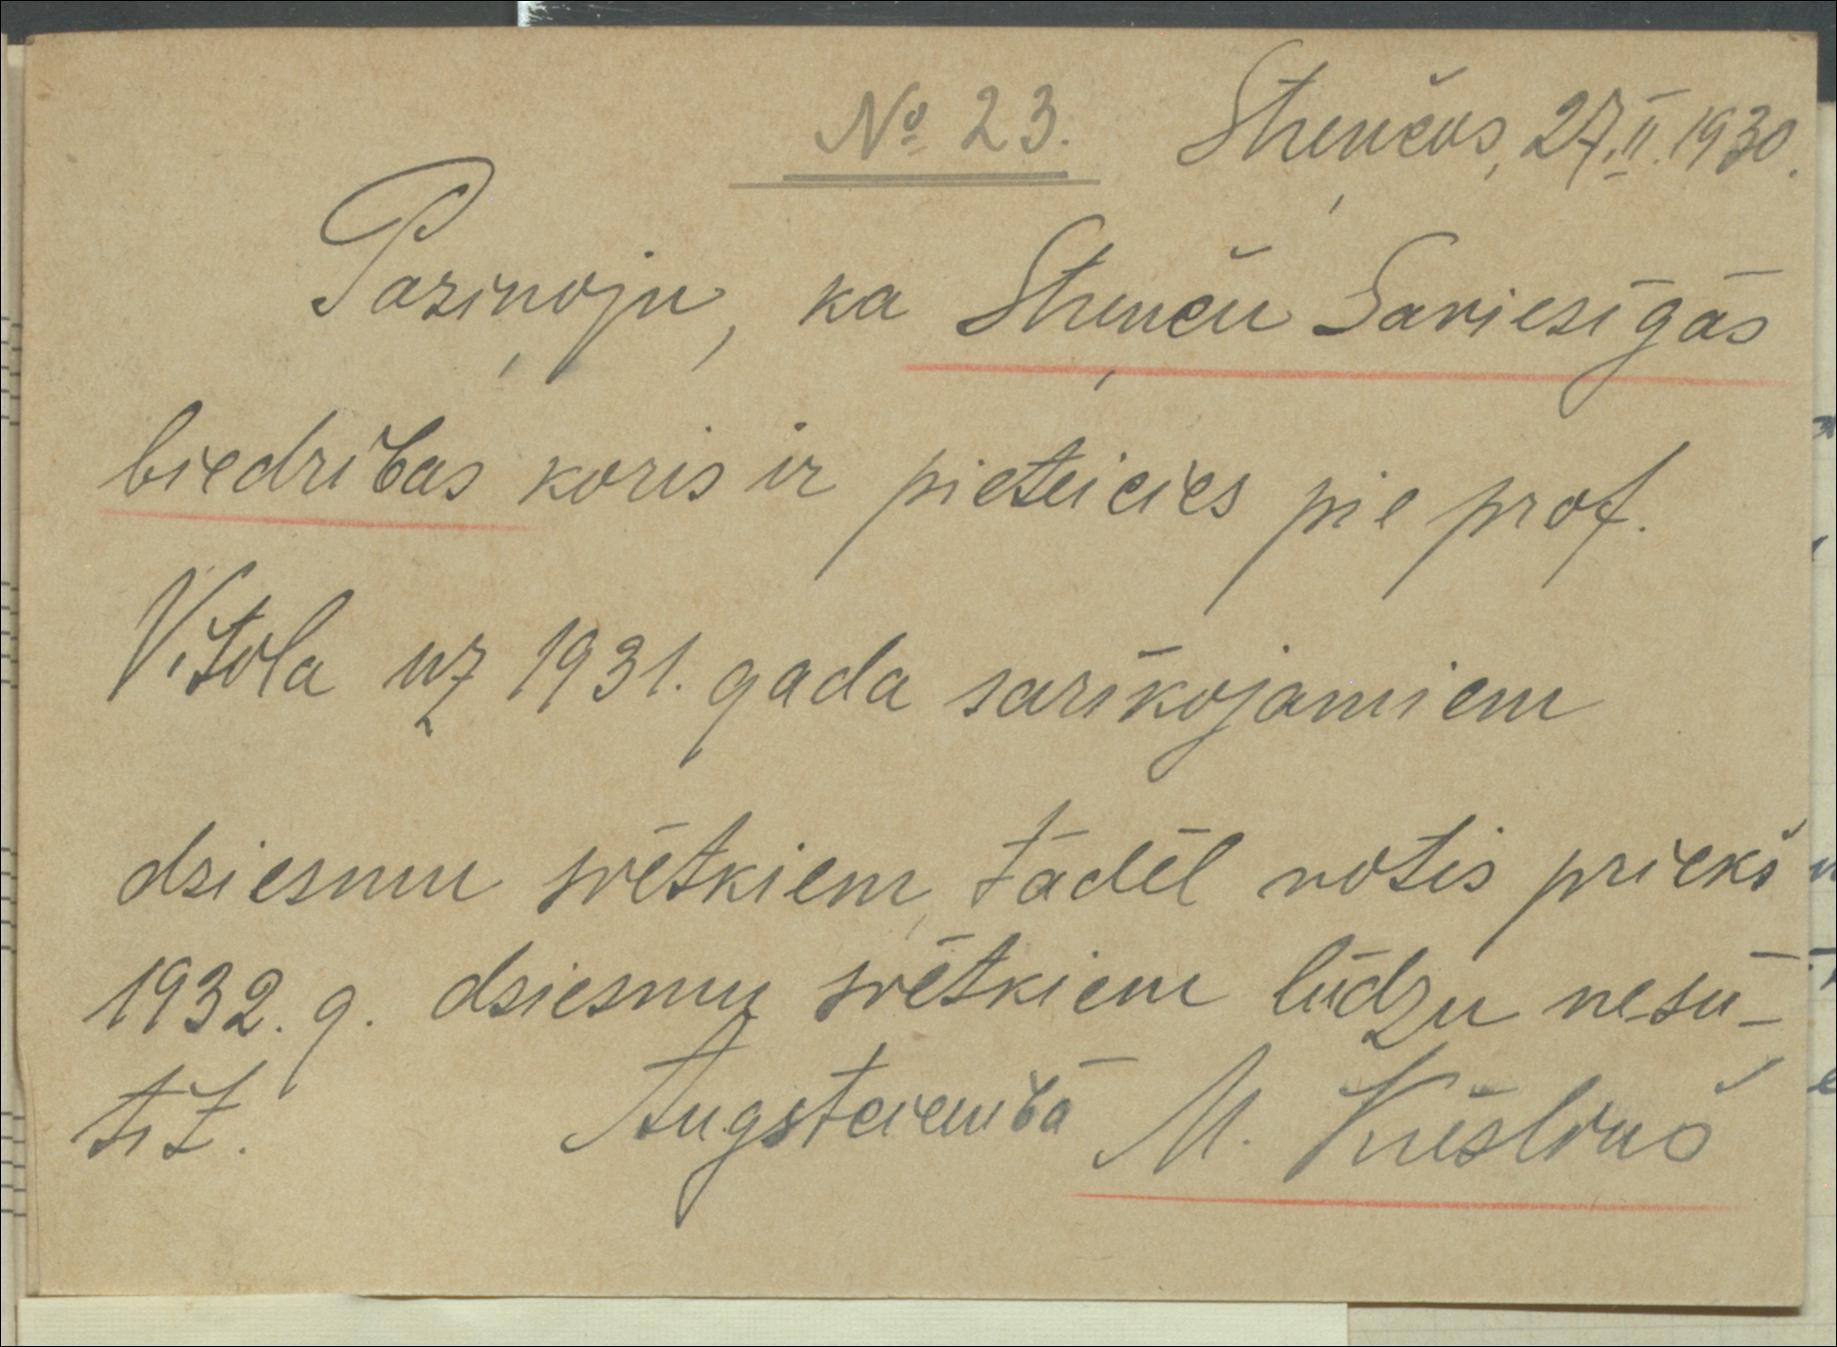 № 23. Strenčos, 27.II.1930.
Paziņoju, ka Strenču Saviesīgās
biedrības koris ir pieteicies pie prof.
Vitola uz 1931. gada sarīkojamiem
dziesmu svētkiem, tādēļ notis priekš
1932. g. dziesmu svētkiem lūdzu nesū-
tīt. Augstcienībā M.